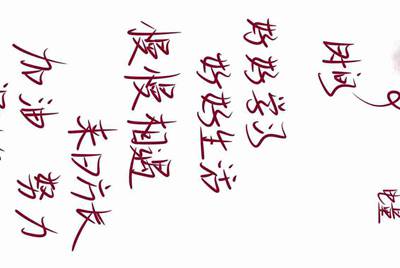 时间
好好学习
好好生活
慢慢相遇
来日方长
加油 努力